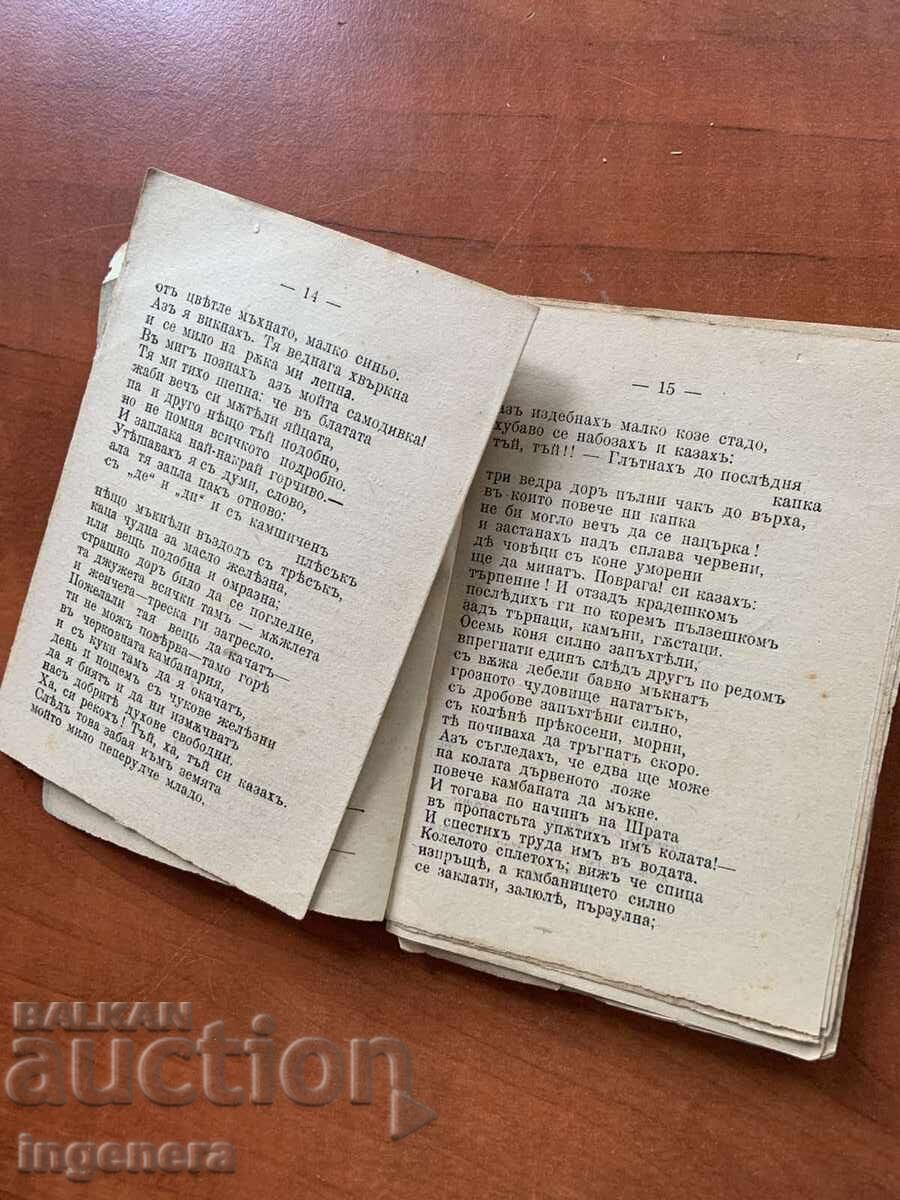 — 14 —
отъ цвѣтле мъхнато, малко синьо.
Азъ я викнахъ. Тя веднага хвъркна
и се мило на рѫка ми лепна.
Въ мигъ познахъ азъ мойта самодивка!
Тя ми тихо шепна: че въ блатата
жаби вечъ си мѫтели яйцата,
па и друго нѣщо тъй подобно,
но не помня всичкото подробно.
И заплака най-накрай горчиво.—
Утѣшавахъ я съ думи, слово,
ала тя запла пакъ отново:
съ „де“ и „ди“ и съ камшиченъ
плѣсъкъ
нѣщо мъкнѣли въздолъ съ трѣсъкъ,
каца чудна за масло желѣзна,
или вещь подобна и омразна;
страшно доръ било да се погледне,
та джуджета всички тамъ — мѫжлета
и женчета—треска ги затресло.
Пожелали тая вещь да качатъ
ти не можъ повѣрва—тамо горѣ
въ черковната камбанария,
и съ куки тамъ да я окачатъ,
день и нощемъ съ чукове желѣзни
да я биятъ и да ни измѫчватъ
насъ добритѣ духове свободни.
Ха, си рекохъ! Тъй, ха, тъй си казахъ.
Слѣдъ това забая към земята
мойто мило пеперудче младо.
— 15 —
азъ издебнахъ малко козе стадо,
хубаво се набозахъ и казахъ:
тъй, тъй!! — Глътнахъ до послѣдня
капка
три ведра доръ пълни чакъ до върха,
въ които повече ни капка
не би могло вечъ да се нацърка!
и застанахъ надъ сплава червени,
дѣ човѣци съ коне уморени
ще да минатъ. Поврага! си казахъ:
търпение! И отзадъ крадешкомъ
послѣдихъ ги по коремъ пълзешкомъ
задъ търнаци, камъни, гѫстаци.
Осемь коня силно запъхтѣли,
впрегнати единъ слѣдъ другъ по редомъ
съ вѫжа дебели бавно мъкнатъ
грозното чудовище нататъкъ,
съ дробове запъхтѣни силно,
съ колѣнѣ прѣкосени, морни,
тѣ почиваха да тръгнатъ скоро.
Азъ съгледахъ, че едва ще може
на колата дървеното ложе
повече камбаната да мъкне.
И тогава по начинъ на Щрата
въ пропастьта упѫтихъ имъ колата!—
И спестихъ труда имъ въ водата.
Колелото сплетохъ; вижъ че спица
изпръщѣ, а камбанището силно
се заклати, залюлѣ, пързулна;
BALKAN
auction
ingenera